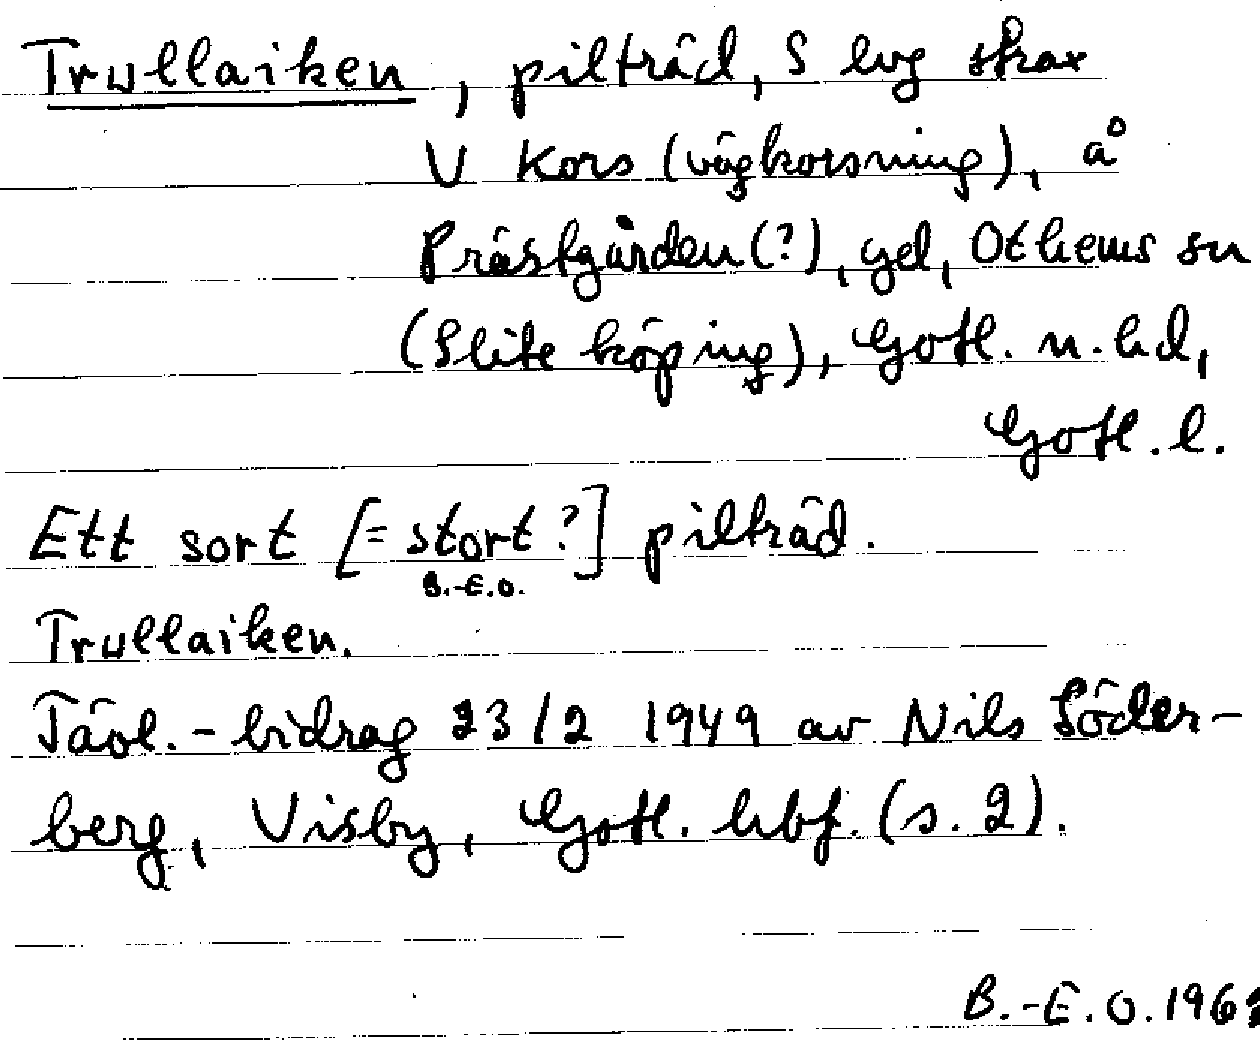 Trullaiken, pilträd, S lvg strax
V Kors (vägkorsning), å
Prästgården (?), gd, Othems sn
(Slite köping), Gotl. n. hd,
Gotl. l.
Ett sort [= stort?] pilträd.
B.-E.O.
Trullaiken.
Tävl.-bidrag 23/2 1949 av Nils Söder-
berg, Visby, Gotl. hbf. (s. 2).
B.-E.O.